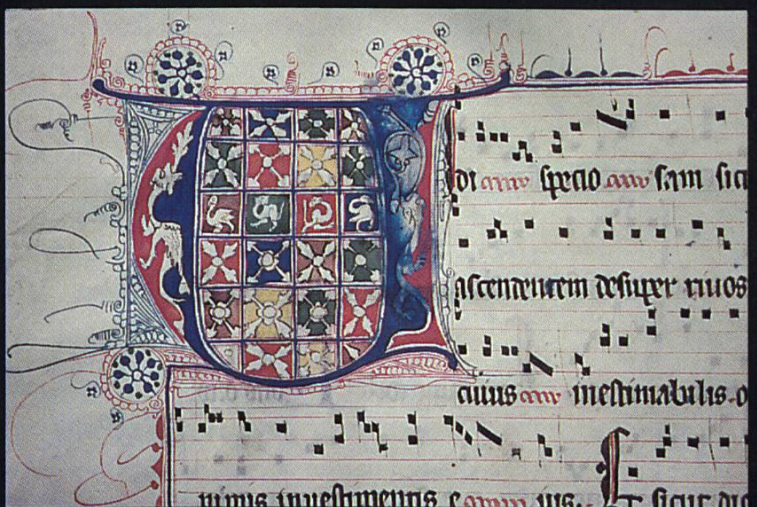 di specio sam sicu
ascendentem desuper riuos
cuius inestimabilis o
nimis inuestimentis e ius. Et sicut die